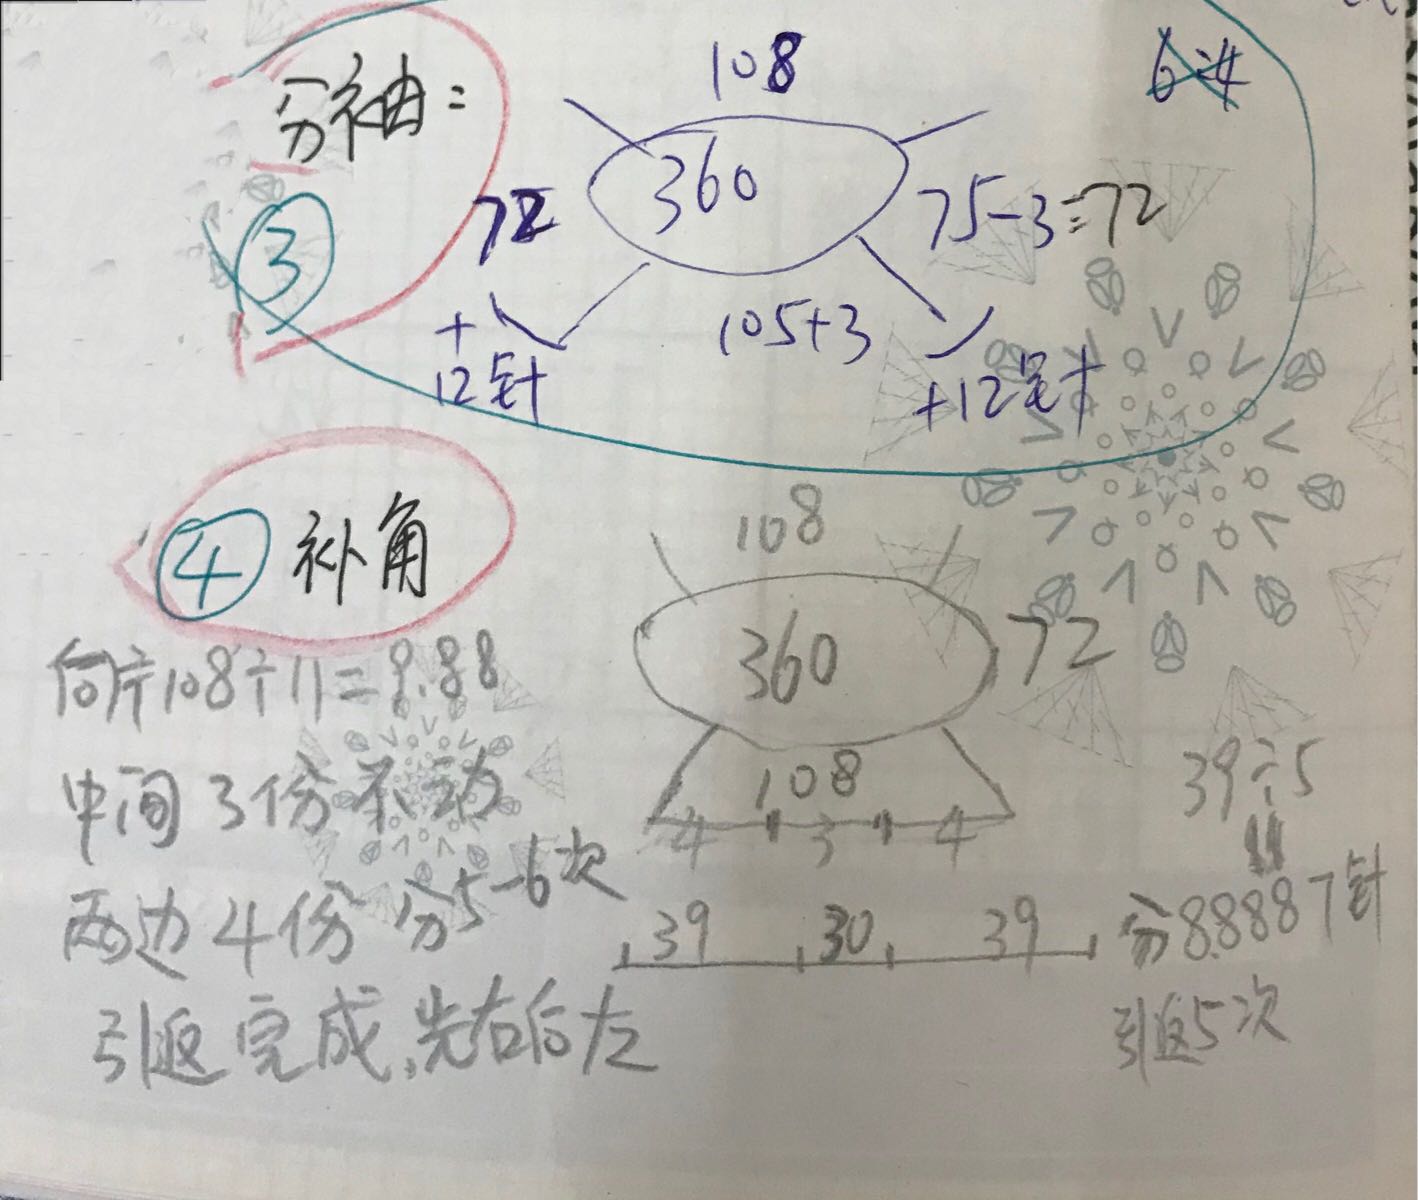 108
6÷4
分袖：
③
72
360
75-3=72
+
12针
105+3
+12针
④ 补角
108
360
72
后片108÷11=9.88
108
39÷5
中间3份不动
4 3 4
两边4份分5-6次
39 30 39
分8.8.8.8 7针
引返完成,先右后左
引返5次